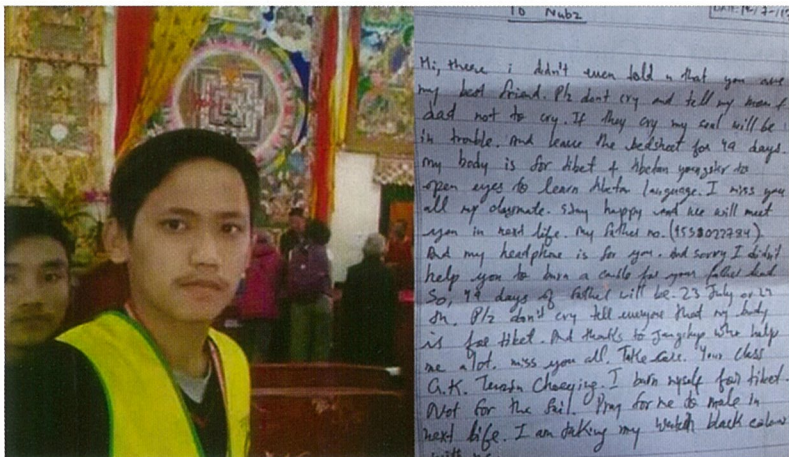 To Nubz
Hi, there i didn't even told u that you are
my best friend. Plz dont cry and tell my mom &
dad not to cry. If they cry my soul will be
in trouble. And leave the bedsheet for 49 days.
My body is for tibet & tibetan youngster to
open eyes to learn tibetan language. I miss you
all my classmate. Stay happy and we will meet
you in next life. My father no.
And my headphone is for you. And sorry I didn't
help you to burn a candle for your father
So, 49 days of father will be 23 July or 27
Plz don't cry tell everyone that my body
is for tibet. And thanks to who help
me alot. miss you all. Take care. Your class
G.K. Tenzin Choeying. I burn myself for tibet.
Not for the fail. Pray for me to male in
next life. I am taking my watch black colour